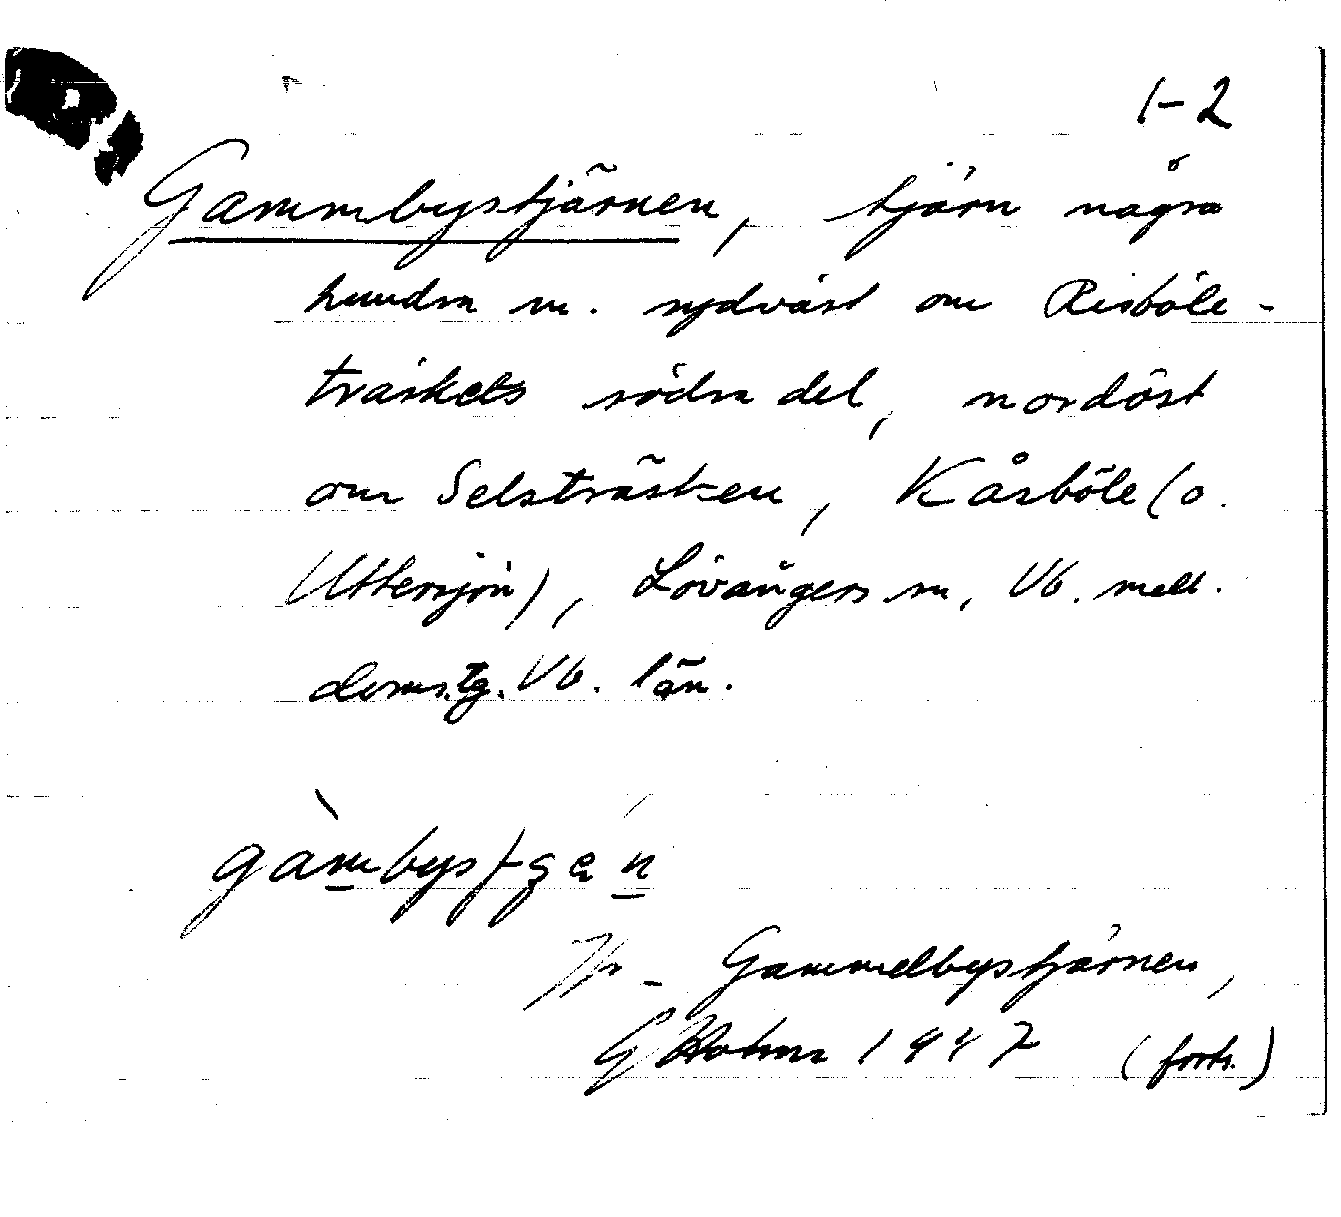 1-2
Gammbystjärnen, tjärn några
hundra m. sydväst om Risböle-
träskets södra del, nordöst
om Selsträsken, Kåsböle (o.
Uttersjön), Lövångers sn, Vb. mell.
doms.tg. Vb. län.
Gammelbystjärnen,
G Holm 1947 (forts.)